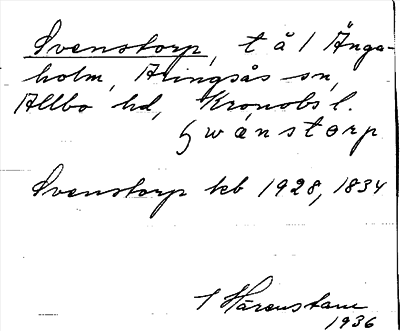 Svenstorp, t å 1 Änga-
holm, Aringsås sn,
Allbo hd, Kronobs l.
swänstorp
Svenstorp kb 1928, 1834
Hårenstam
1936